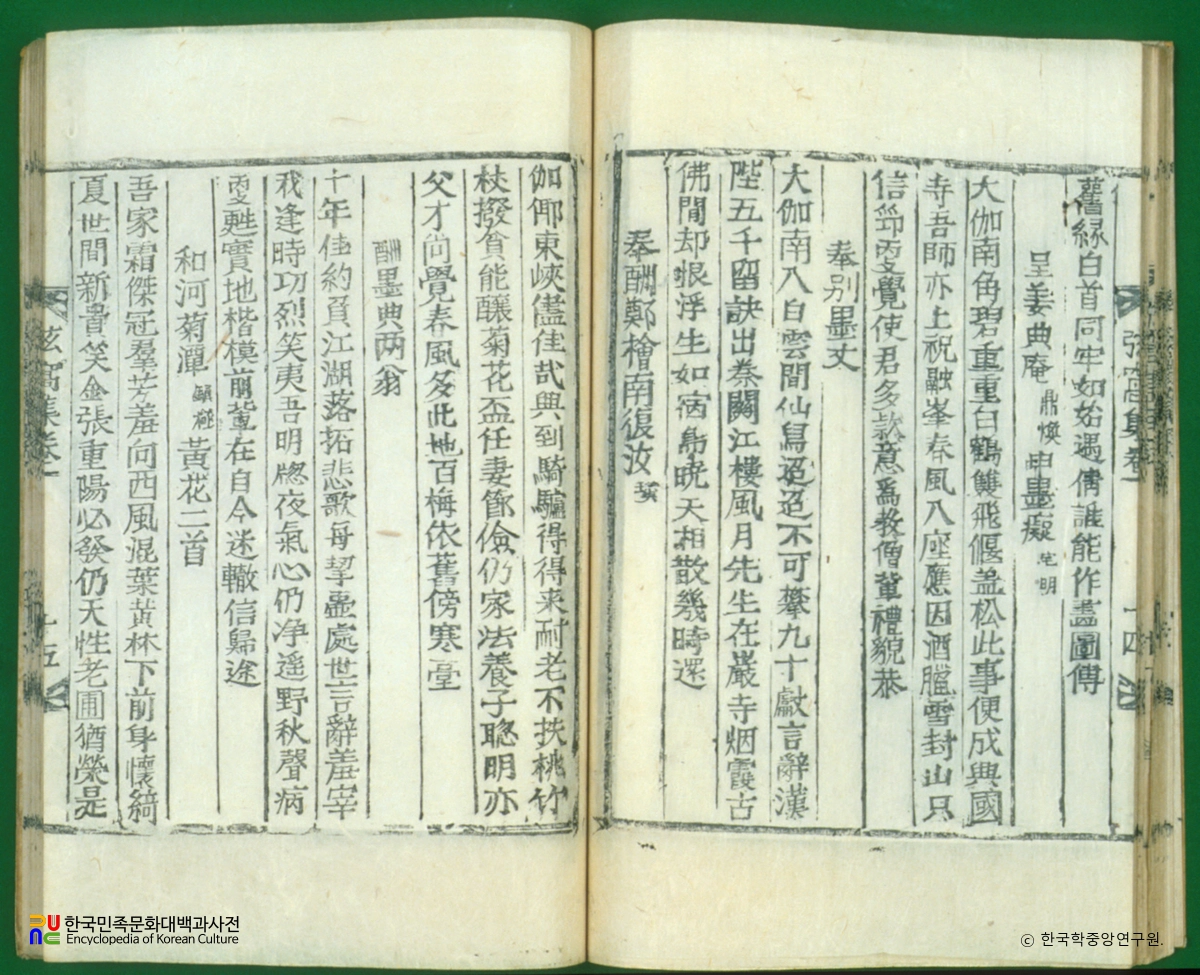 舊緣白首同牢如始遇傳誰能作畫圖傳
呈姜典庵 鼎煥 申墨癡 宅明
大伽南角碧重重白鶴雙飛偃盖松此事便成典國
寺吾師亦上祝融峯春風八座應因酒臘雪封山只
信筇更覺使君多款意爲教僧輩禮貌恭
奉別墨丈
大伽南八白雲間仙舃迢迢不可攀九十獻言辭漢
陛五千留訣出秦關江樓風月先生在巖寺烟霞古
佛閒却恨浮生如宿鳥曉天相散幾時還
奉酬鄭檜南復汝
伽倻東峽儘佳哉興到騎驢得得来耐老不扶桃竹
杖撥貧能釀菊花盃任妻節儉仍家法養子聡明亦
父才尙覺春風多此地百梅依舊傍寒臺
酬墨典两翁
十年佳約負江湖落拓悲歌每擊壷處世言辭羞宰
我逢時功烈笑夷吾明牕夜氣心仍浄遥野秋聲病
更甦實地楷模前輩在自今迷轍信歸途
和河菊潭 黃花二首
吾家霜傑冠羣芳羞向西風混葉黃林下前身懷綺
夏世間新貴笑金張重陽必發仍天性老圃猶榮是
弦窩集卷一
十四
弦窩集卷一
十五
한국민족문화대백과사전
Encyclopedia of Korean Culture
ⓒ 한국학중앙연구원.